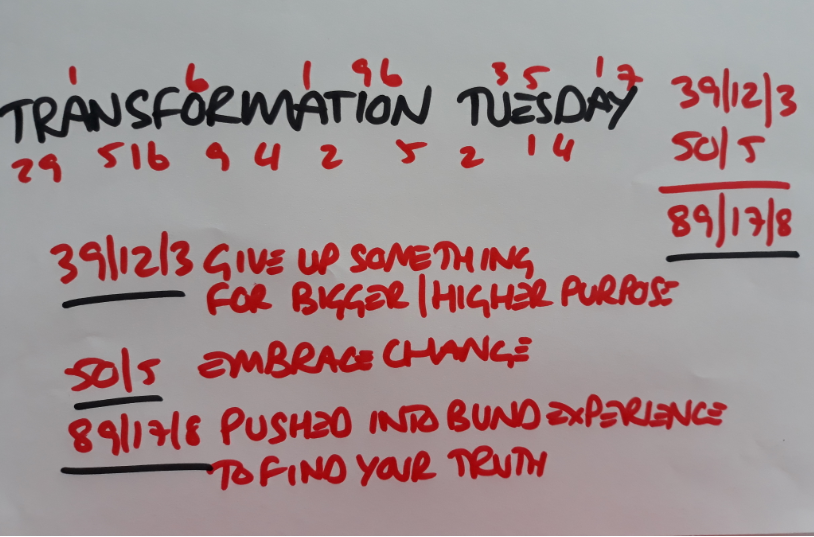 1 6 1 9 6 3 5 1 7
TRANSFORMATION TUESDAY
2 9 5 1 6 9 4 2 5 2 1 4
39/12/3
50/5
89/17/8
39/12/3 GIVE UP SOMETHING
FOR BIGGER/HIGHER PURPOSE
50/5 EMBRACE CHANGE
89/17/8 PUSHED INTO BLIND EXPERIENCE
TO FIND YOUR TRUTH